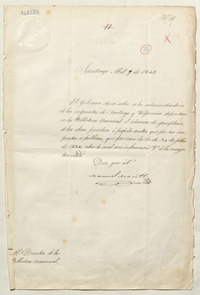 Santiago Abril 9 de 1842
El Gobierno desea saber si los administradores
de las imprentas de Santiago y Valparaiso depositan
en la Biblioteca nacional el número de ejemplares
de las obras, periódicos i papeles sueltos que por sus im-
prentas se publican, que previene la lei de 24 de julio
de 1834, sobre lo cual me informará V. a la mayor
brevedad.
Dios gue. a V.
Manuel Montt
Al Director de la
Biblioteca nacional.